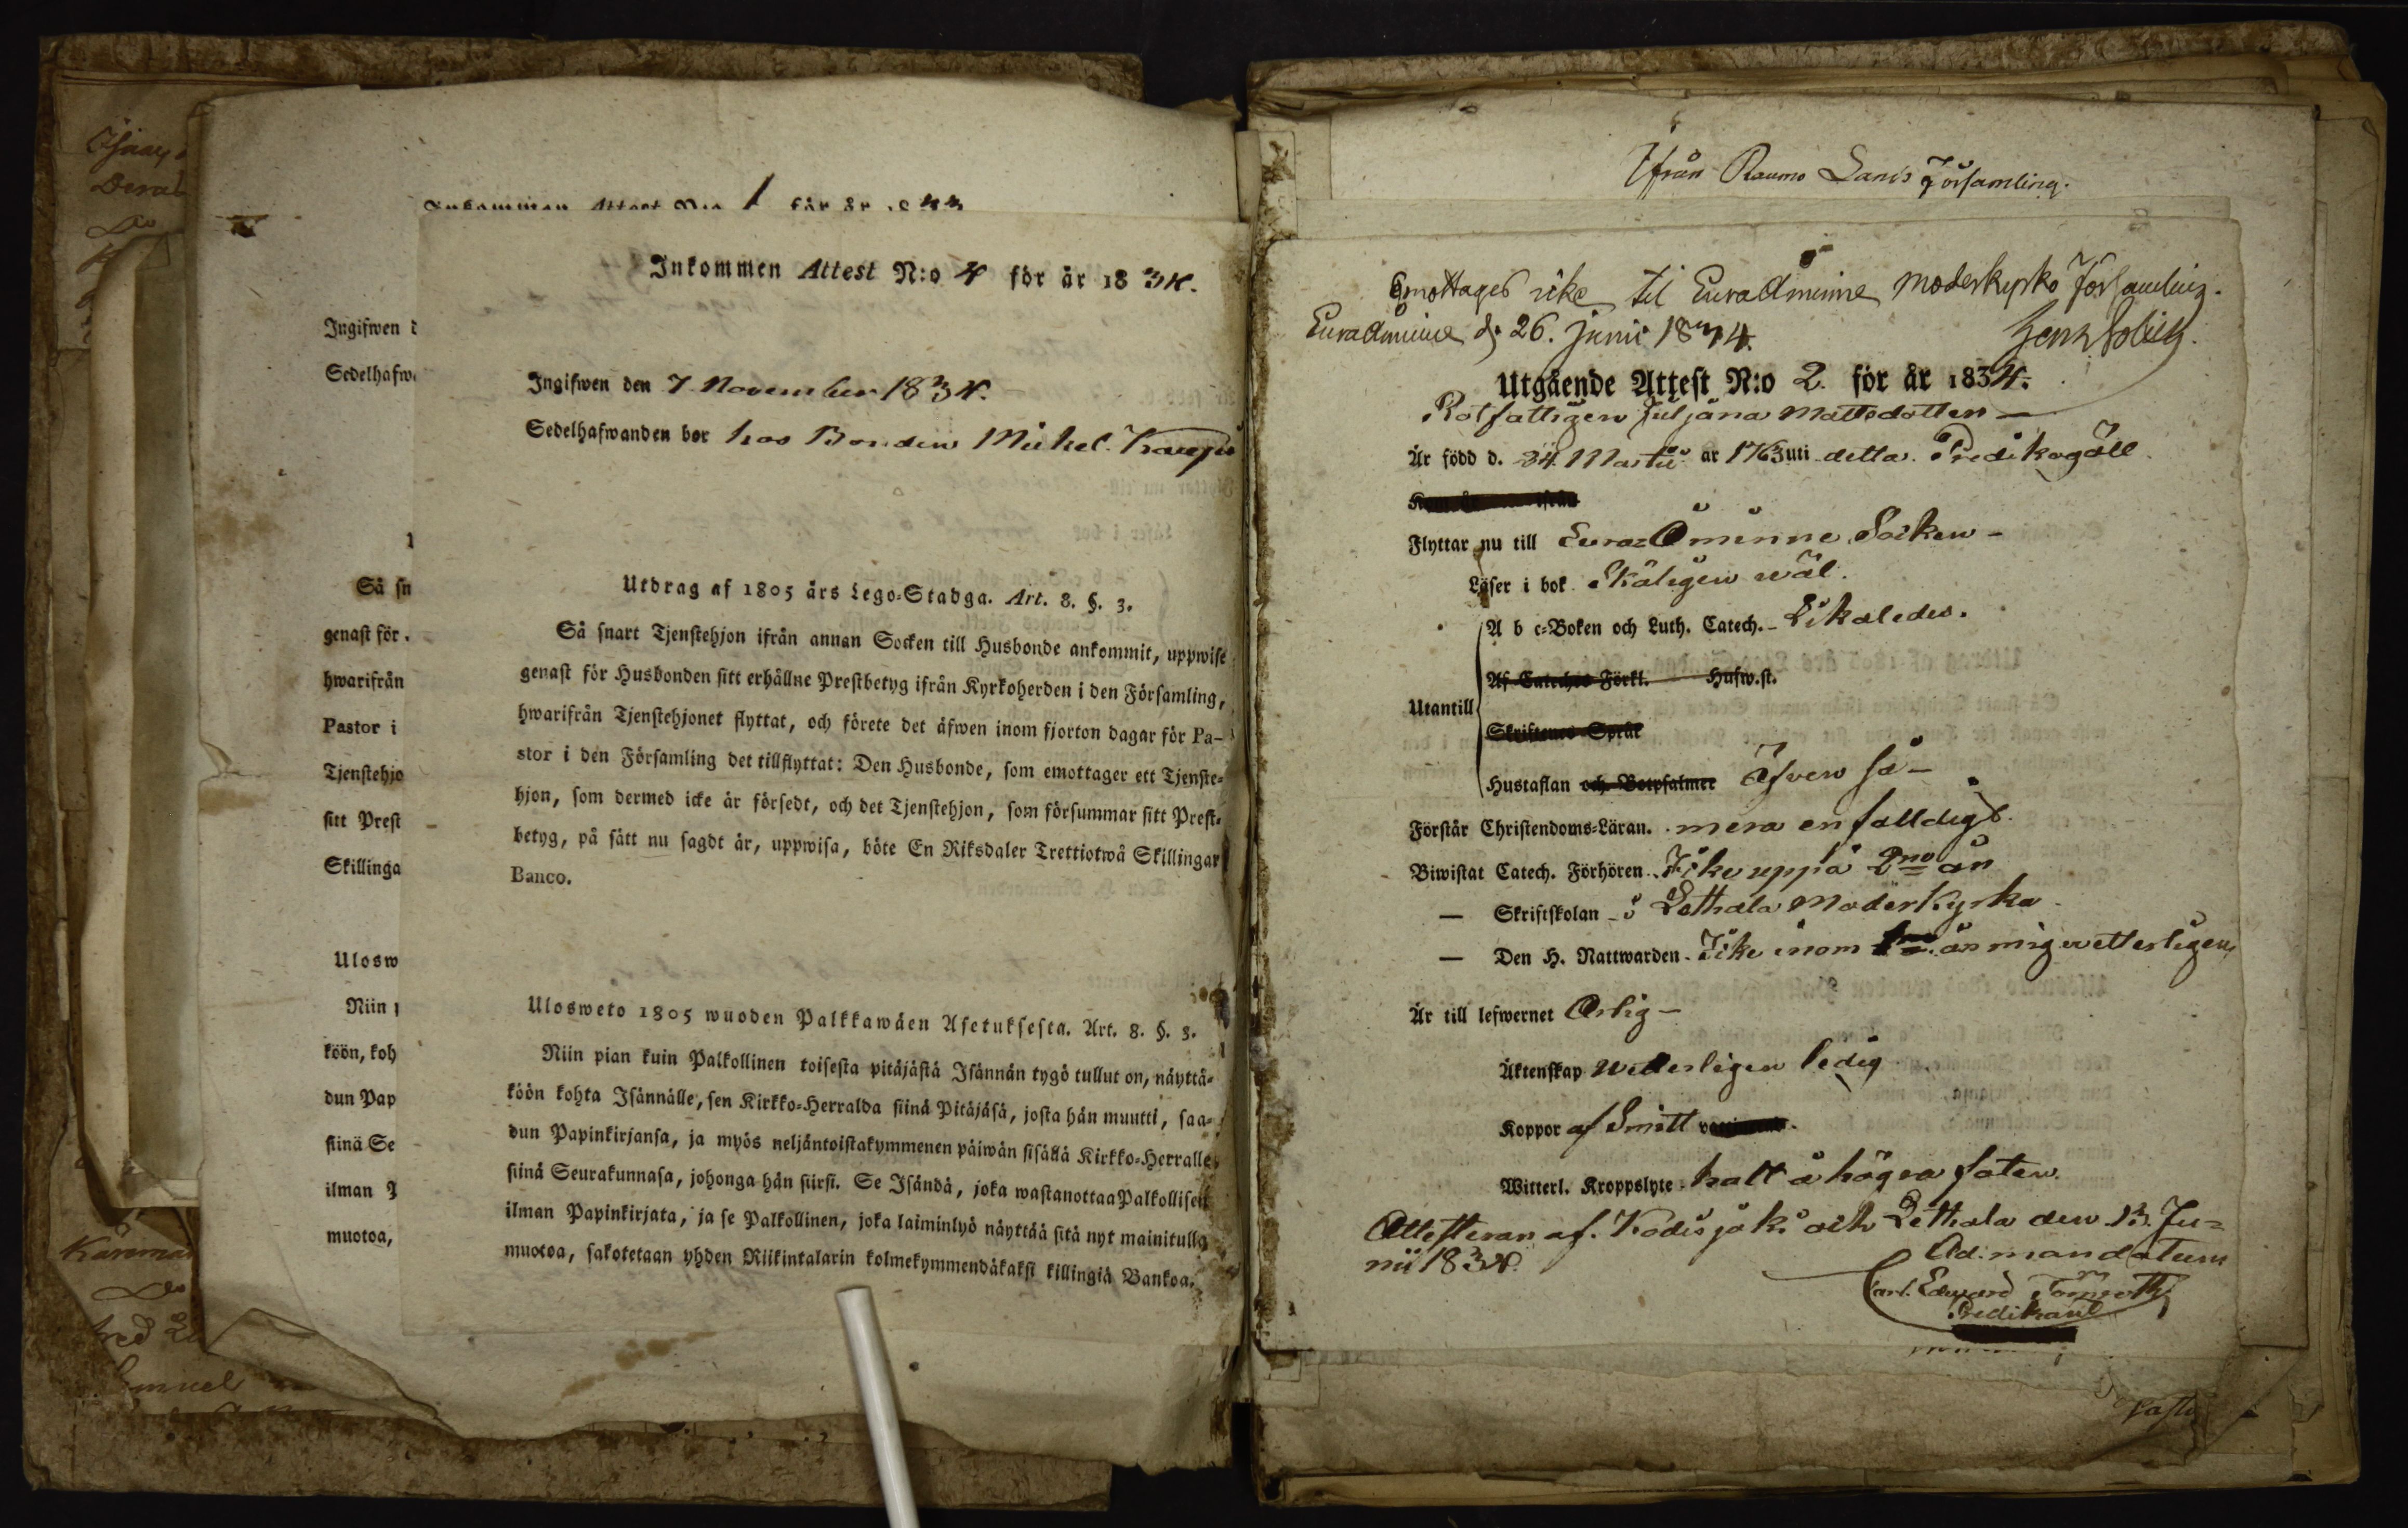 Inkommen Attest N:o 1 för år 1833
Inkommen Attest N:o 4 för år 1834.
Ingifwen d
Sedelhafwa
Ingifwen den 7 November 1834.
Sedelhafwanden bor hos Bonden Mickel
Så sn
genast för
hwarifrån
Pastor i
Tjenstehjo
sitt Prest
Skillinga
Utdrag af 1805 års Lego-Stadga. Art. 8. §. 3.
Så snart Tjenstehjon ifrån annan Socken till Husbonde ankommit, uppwise
genast för Husbonden sitt erhållne Prestbetyg ifrån Kyrkoherden i den Församling,
hwarifrån Tjenstehjonet flyttat, och förete det äfwen inom fjorton dagar för Pa-
stor i den Församling det tillflyttat: Den Husbonde, som emottager ett Tjenste-
hjon, som dermed icke är försedt, och det Tjenstehjon, som försummar sitt Prest-
betyg, på sätt nu sagdt är, uppwisa, böte En Riksdaler Trettiotwå Skillingar
Banco.
Ulosw
Niin
köön, koh
dun Pap
siinä Se
ilman P
muotoa,
Ulosweto 1805 wuoden Palkkawäen Asetuksesta. Art. 8. §. 3.
Niin pian kuin Palkollinen toisesta pitäjästä Isännän tygö tullut on, näyttä-
köön kohta Isännälle, sen Kirkko-Herralda siinä Pitäjäsä, josta hän muutti, saa-
dun Papinkirjansa, ja myös neljäntoistakymmenen päiwän sisällä Kirkko-Herralle
siinä Seurakunnasa, johonga hän siirsi. Se Isändä, joka wastanottaa Palkollisen
ilman Papinkirjata, ja se Palkollinen, joka laiminlyö näyttää sitä nyt mainitulla
muotoa, sakotetaan yhden Riikintalarin kolmekymmendäkaksi killingiä Bankoa.
Ifrån Raumo Lands Församling.
Emottages icke til Euraåminne moderkyrko Församling.
Euraåminne d. 26. Junii 1834.
Utgående Attest N:o 2. för år 1834.
Rotfattigen Juljana Mattsdotter
Är född d. 24 Martii år 1763 uti detta Predikogäll
Flyttar nu till Eura-Åminne Socken
Läser i bok Skäligen wäl.
A b c-Boken och Luth. Catech. Likaledes.
Af Cateches Förkl. Husw.st.
Utantill
Skriftenes Språk
Hustaflan och Botpsalmer Äfven så
Förstår Christendoms-Läran. mera enfalldigt.
Biwistat Catech. Förhören. Icke uppå 2no år
— Skriftskolan i Letthala Moderkyrka
— Den H. Nattwarden. Icke inom år mig wetterligen
Är till lefwernet Ärlig
Äktenskap Wetterligen ledig
Koppor af Smitt
Witterl. Kroppslyte. halt å högra foten.
Attesterar af Kodisjoki och Letthala den 13. Ju-
nii 1834.
Ad: mandatum
Carl Edward Törnroth
Predikant